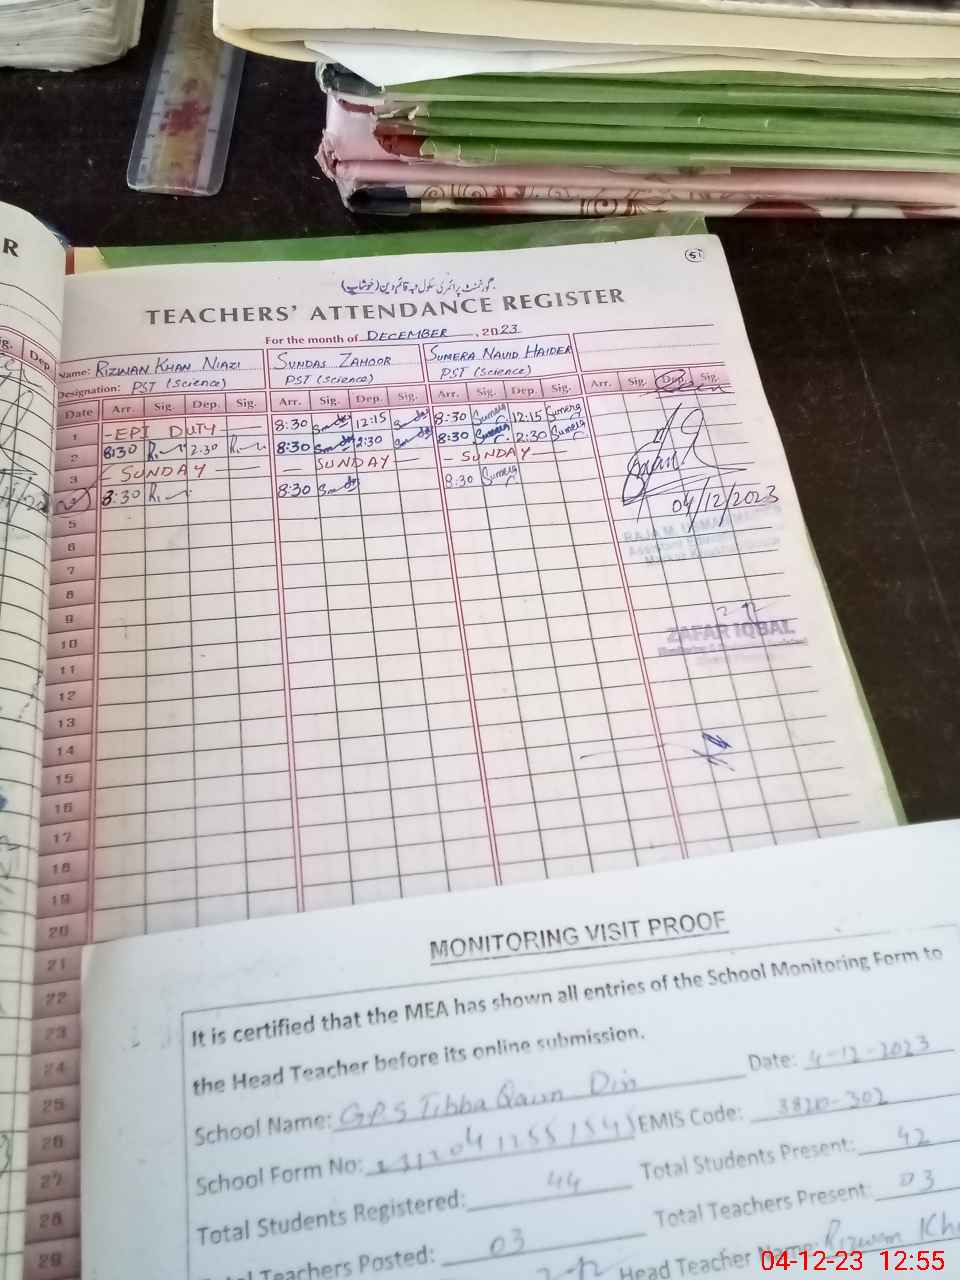 R
51
گورنمنٹ پرائمری سکول ٹبہ قائم دین (خوشاب)
TEACHERS' ATTENDANCE REGISTER
For the month of DECEMBER, 2023
Name: RIZWAN KHAN NIAZI SUNDAS ZAHOOR SUMERA NAVID HAIDER
Designation: PST (Science) PST (Science) PST (Science)
Date Arr. Sig. Dep. Sig. Arr. Sig. Dep. Sig. Arr. Sig. Dep. Sig. Arr. Sig. Dep. Sig.
1 - EPI DUTY - 8:30 12:15 8:30 Sumera 12:15 Sumera
2 8:30 2:30 8:30 2:30 8:30 Sumera 2:30 Sumera
3 - SUNDAY - - SUNDAY - - SUNDAY -
8:30 8:30 8:30 Sumera
04/12/2023
5
6
7
8
9
10
ZAFAR IQBAL
11
12
13
14
15
16
17
18
19
20
21
22
23
24
25
26
27
28
29
MONITORING VISIT PROOF
It is certified that the MEA has shown all entries of the School Monitoring Form to
the Head Teacher before its online submission.
Date: 4-12-2023
School Name: GPS Tibba Qaim Din
EMIS Code: 38210-302
School Form No:
Total Students Present: 42
Total Students Registered: 44
Total Teachers Present: 03
Teachers Posted: 03
Head Teacher Name: Rizwan Kha
04-12-23 12:55